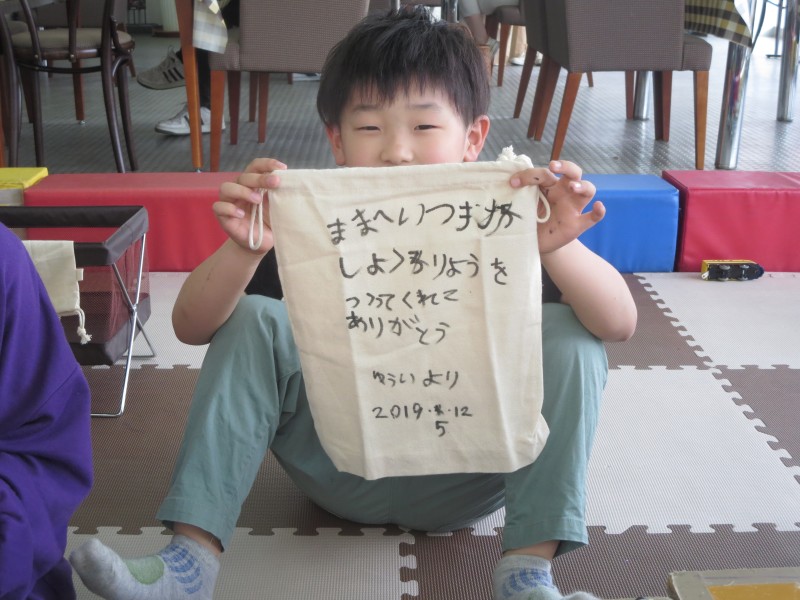 ままへいつも
しようりようを
つくってくれて
ありがとう
ゆういより
2019.5.12